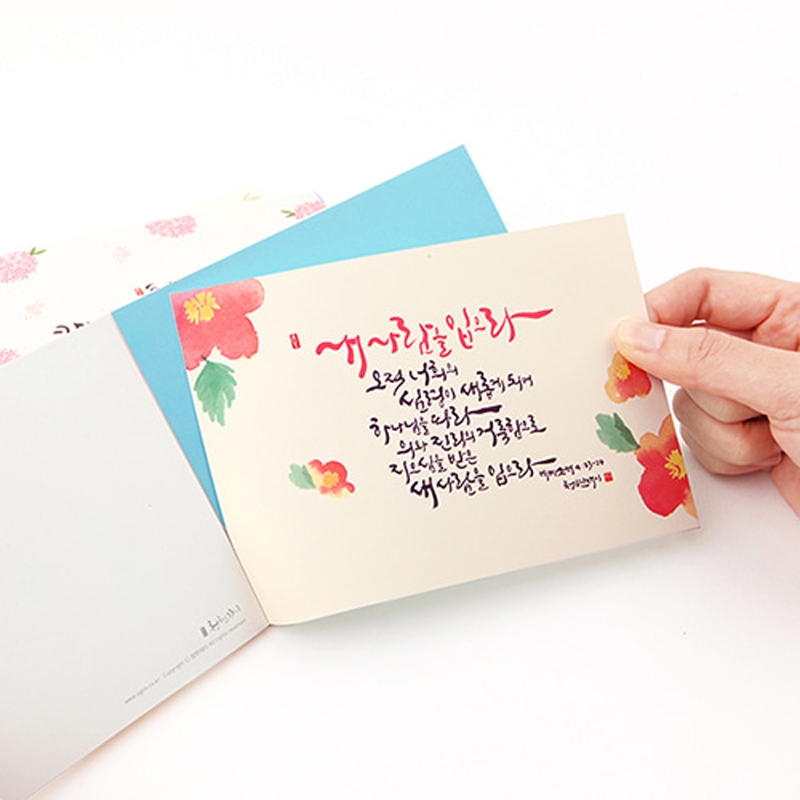 새사람을 입으라
오직 너희의
심령이 새롭게 되어
하나님을 따라
의와 진리의 거룩함으로
지으심을 받은
새사람을 입으라 에베소서 4:23-24